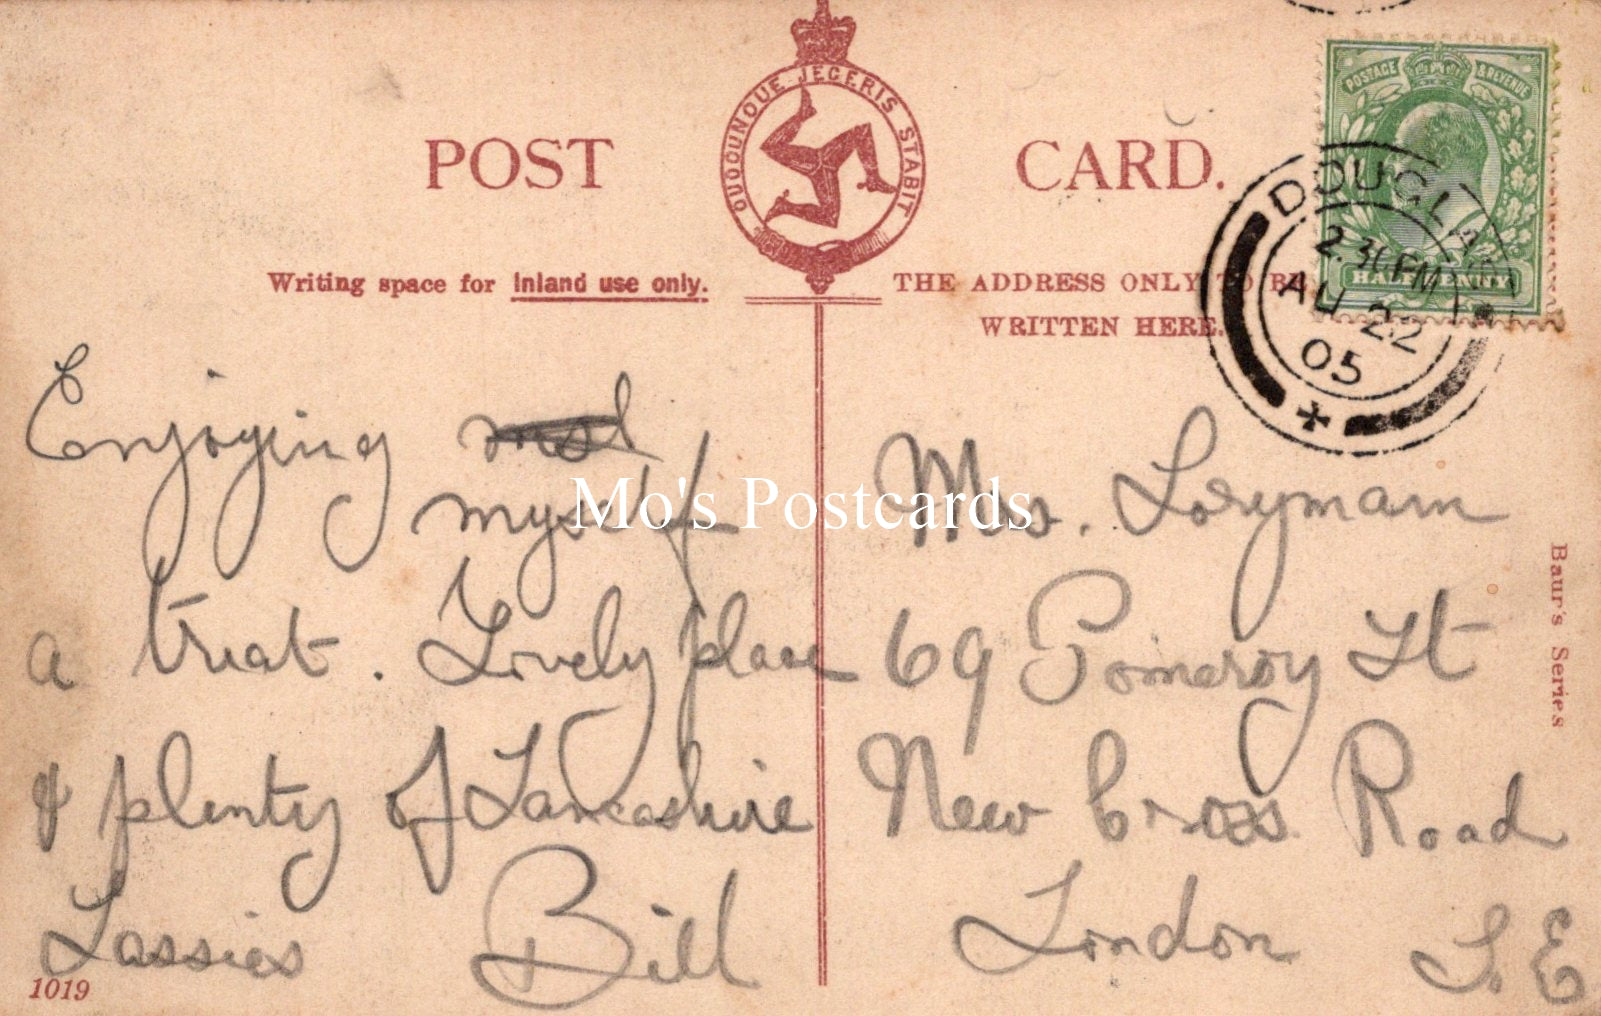 POST CARD.
QUOCUNQUE JECERIS STABIT
POSTAGE & REVENUE
HALFPENNY
DOUGLAS
2.30 PM
AU 22
05
Writing space for inland use only.
THE ADDRESS ONLY TO BE
WRITTEN HERE.
Enjoying
myself
a treat. Lovely place
& plenty of Lancashire
Lassies Bill
1019
Mrs.
69 Pomeroy St
New Cross Road
London S.E
Baur's Series
Mo's Postcards